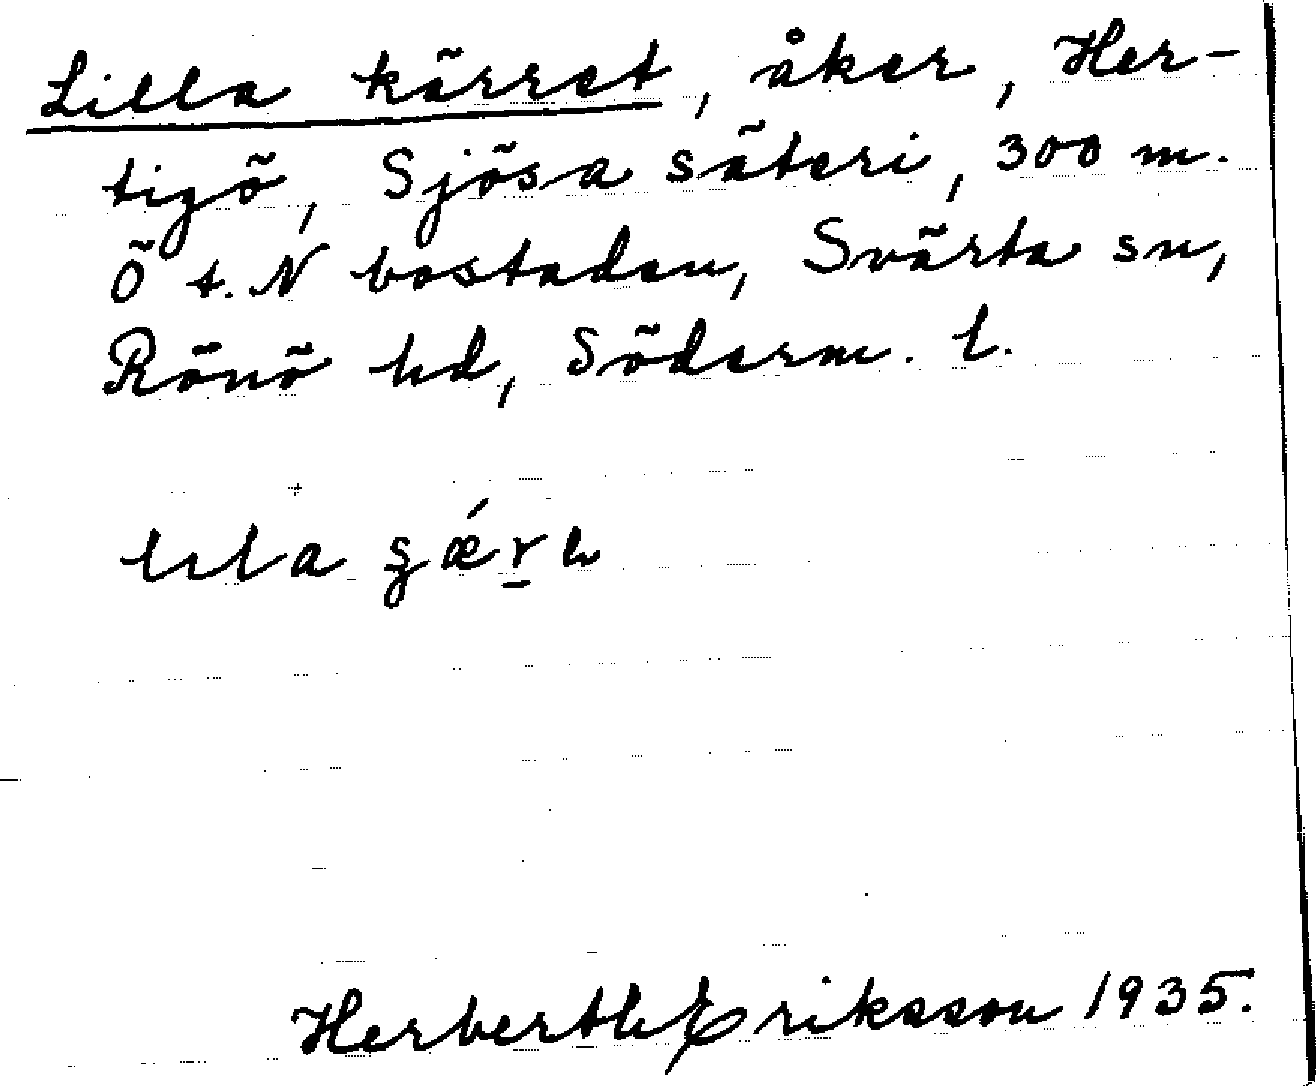 Lilla kärret, åker, Her-
tigö, Sjösa säteri, 300 m.
Ö t. N bostaden, Svärta sn,
Rönö hd, Söderm. l.
Herberth Eriksson 1935.